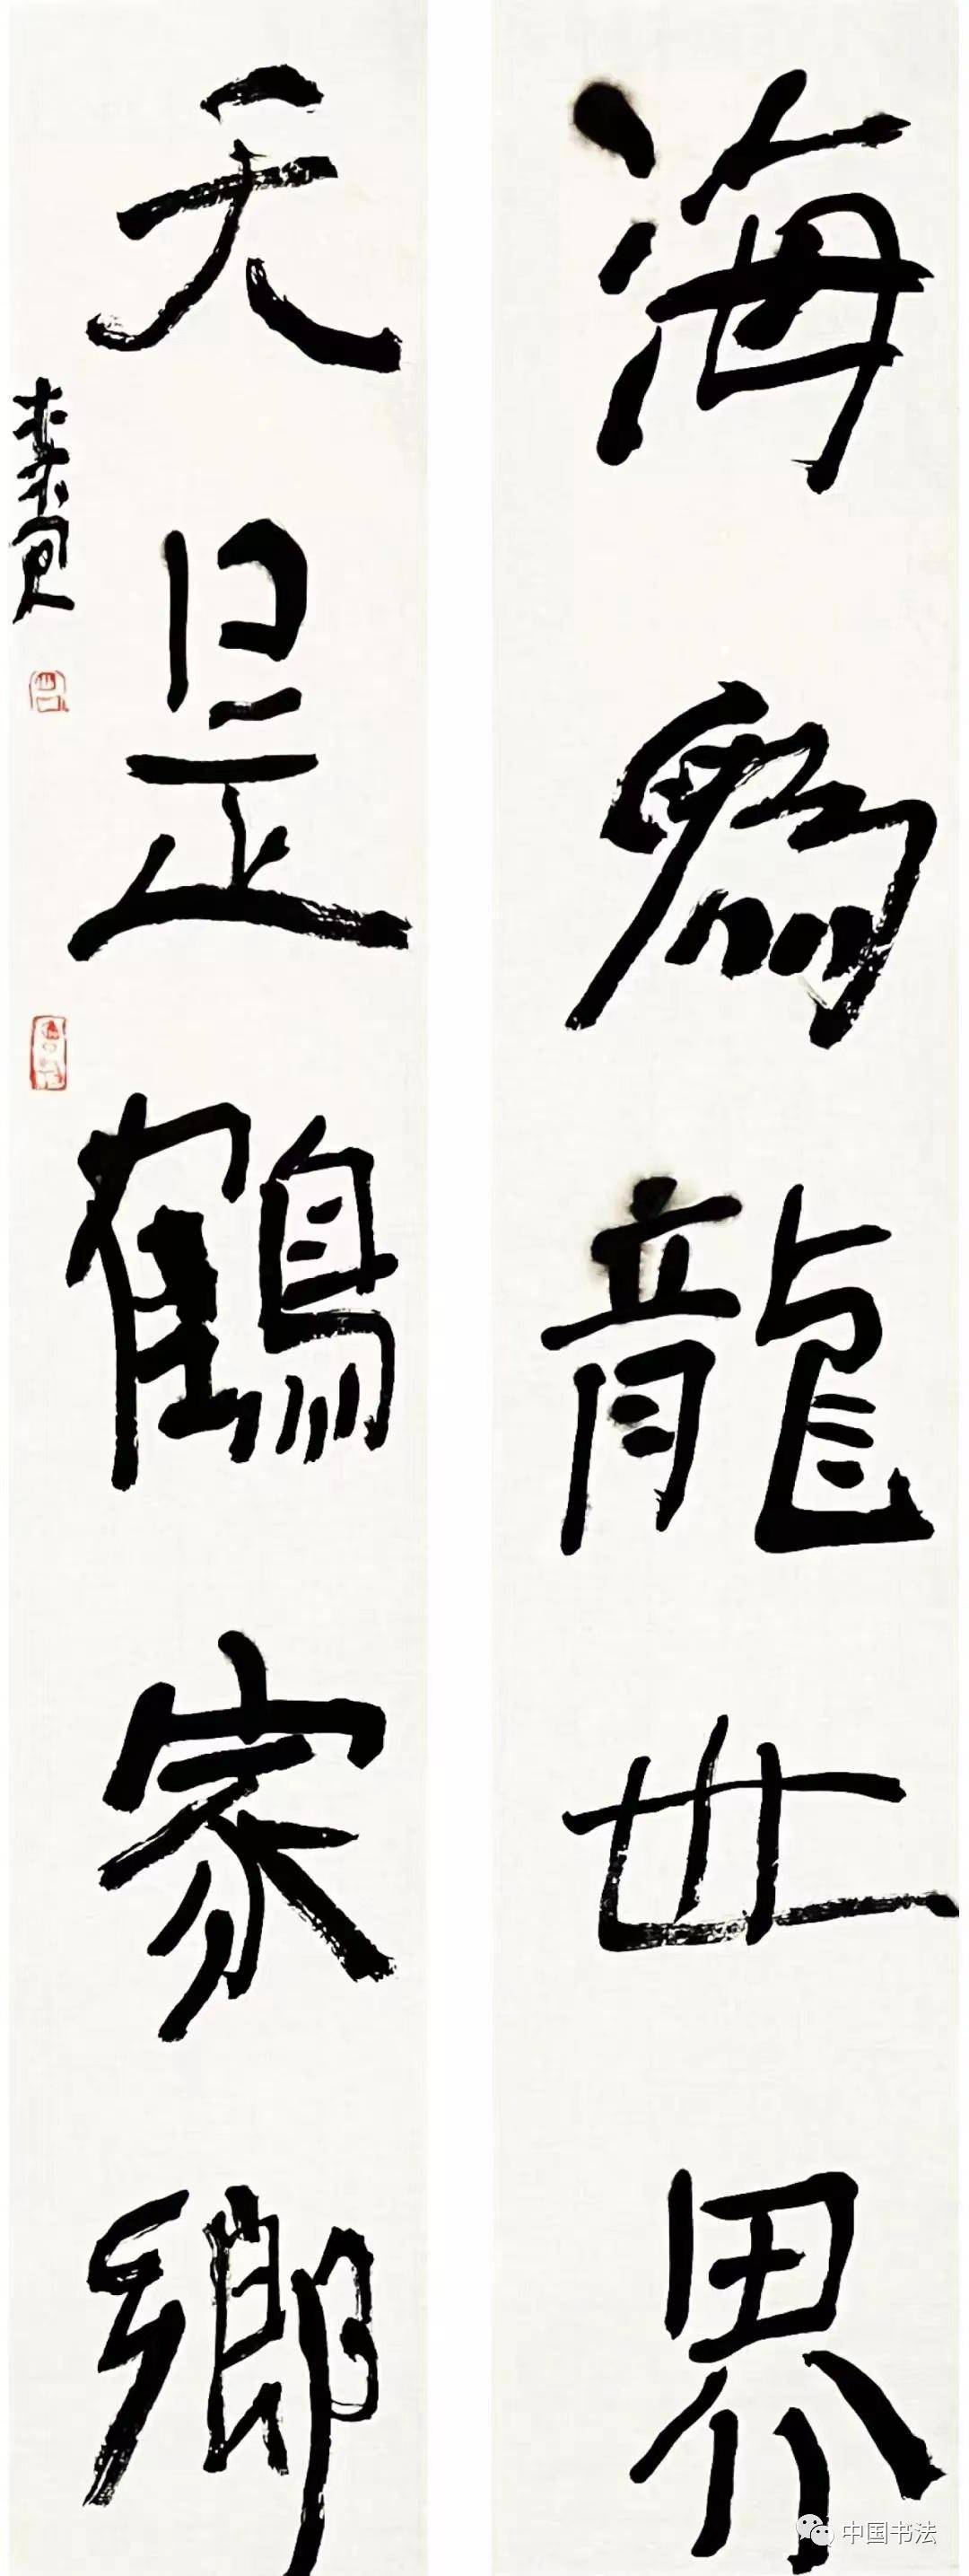 海為龍世界
天是鶴家鄉
中国书法